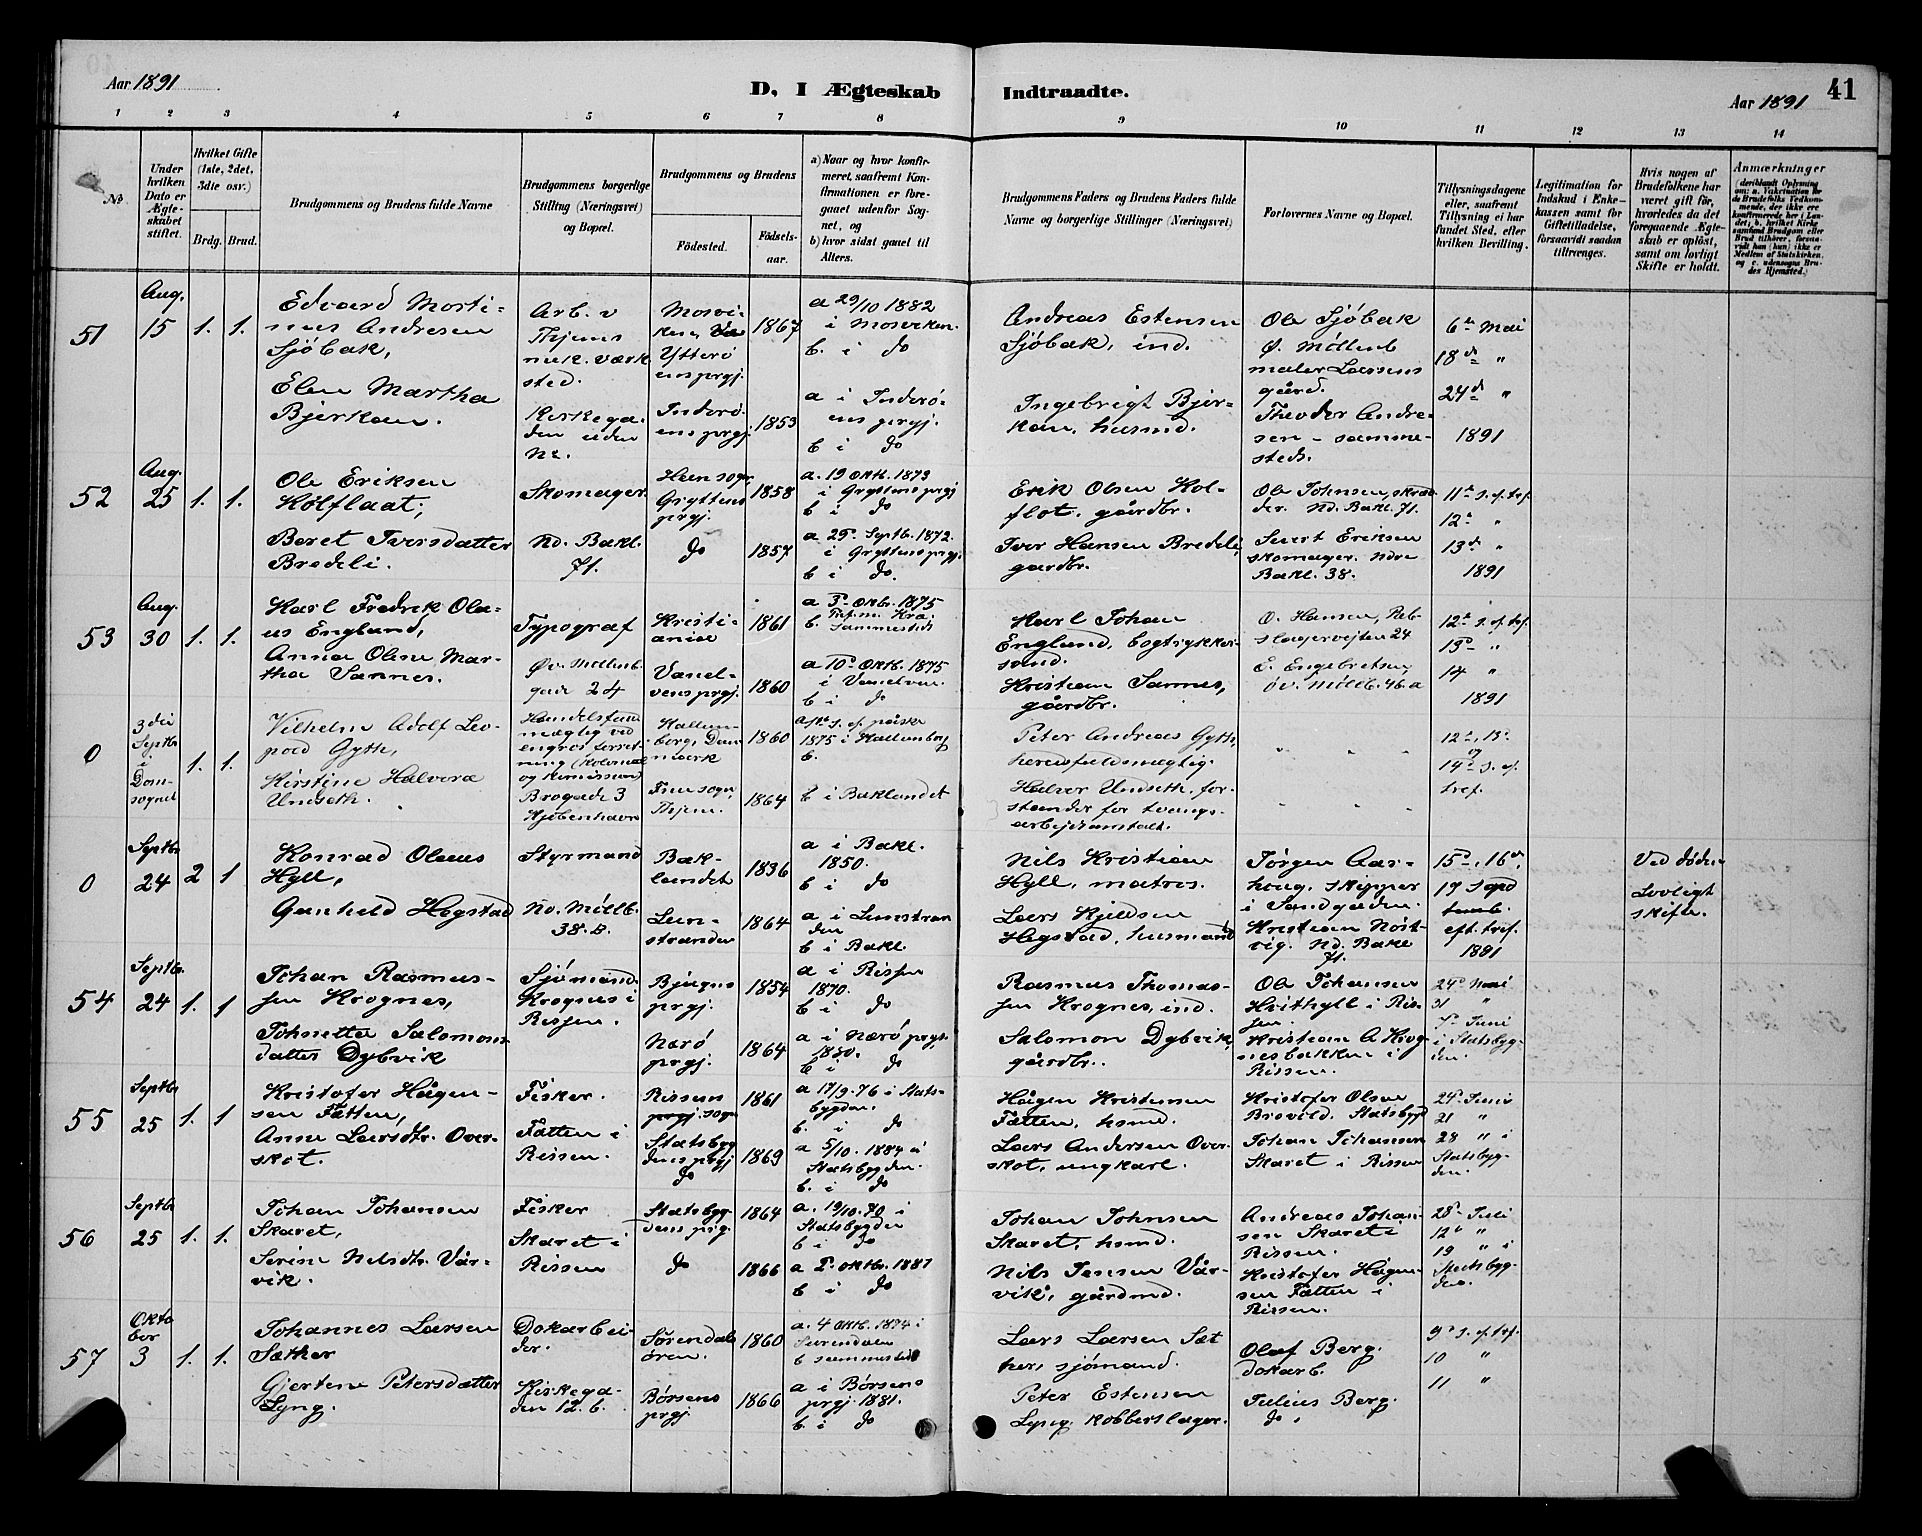 Aar 1891
D. I Ægteskab Indtraadte.
Aar 1891
41
1 2 3 4 5 6 7 8 9 10 11 12 13 14
No.
Under hvilken Dato er Ægteskabet stiftet.
Hvilket Gifte (1ste, 2det, 3die osv.)
Brdg. Brud.
Brudgommens og Brudens fulde Navne
Brudgommens borgerlige Stilling (Næringsvei) og Bopæl.
Brudgommens og Brudens
Födested.
Födselsaar.
a) Naar og hvor konfirmeret, saafremt Konfirmationen er foregaaet udenfor Sognet, og
b) hvor sidst gaaet til Alters.
Brudgommens Faders og Brudens Faders fulde Navne og borgerlige Stillinger (Næringsvei)
Forlovernes Navne og Bopæl.
Tillysningsdagene eller, saafremt Tillysning ei har fundet Sted, efter hvilken Bevilling.
Legitimation for Indskud i Enkekassen samt for Giftetilladelse, forsaavidt saadan tiltrænges.
Hvis nogen af Brudefolkene har været gift för, hvorledes da det foregaaende Ægteskab er oplöst, samt om lovligt Skifte er holdt.
Anmærkninger
51
Aug. 15
1. 1.
Edvard Mortinus Andresen Sjöbak,
Elen Martha Bjerkan.
Arb. v Thjems mek. værksted.
Kirkegaden uden No.
Mosviken, Ytteröens prgj.
Inderöens prgj.
1867
1853
a 29/10 1882 i Mosviken.
b. i do
a i Inderöens prgj.
b i do
Andreas Estensen Sjöbak, ind.
Ingebrigt Bjerkan, husmd.
Ole Sjöbak
Ö. Möllenb
maler Larsens gård.
Theodor Andresen - sammesteds.
6te Mai
18de "
24d "
1891
52
Aug. 25
1. 1.
Ole Eriksen Holflaat,
Beret Iversdatter Bredeli.
Skomager.
Nd. Bakl. 71.
Heen sogn, Gryttens prgj.
do
1858
1857
a. 19 Oktb. 1873 i Gryttens prgj
b i do
a 29. Septb. 1872. i Gryttens prgj.
b i do.
Erik Olsen Holflot. gårdbr.
Iver Hansen Bredeli, gårdbr.
Ole Johnsen, skræder. Nd. Bakl. 71.
Sivert Eriksen skomager. Ndre Bakl. 38.
11te s. ef. tref.
12te "
13de "
1891
53
Aug. 30
1. 1.
Karl Fredrik Olaus Englund,
Anna Oline Martha Sannes.
Typograf
Öv. Möllenb gade 24
Kristiania
Vanelvens prgj.
1861
1860
a 3. Oktbr. 1875
b. Sammesteds
a 10d Oktb. 1875 i Vanelven.
b i do
Karl Johan Englund, bogtrykkersvend.
Kristian Sannes, gårdbr.
O. Hansen, Rebslagervejten 24
E. Engebretsen, öv. Möllb. 46.a
12te s. ef. tref.
13d "
14 "
1891
0
3die Septbr i Domsognet
1. 1.
Vilhelm Adolf Leopold Gyth,
Kirstine Halvora Undseth.
Handelsfuldmægtig ved engros forretning (Kolonial og Komission)
Brogade 3 Kjöbenhavn
Kallundborg, Danmark
Frue sogn, Thjem.
1860
1864
a 1te s. ef. påske 1875 i Kallunborg
b.
b i Baklandet
Peter Andreas Gyth, herredsfuldmægtig.
Halvor Undseth, forstander for tvangsarbejdsanstalt.
" " "
12te, 13de og 14de s. ef. tref.
0
Septbr 24
2 1
Konrad Olaus Hyll,
Gunhild Hegstad
Styrmand
Nd. Möllb. 38.b.
Baklandet
Leinstranden
1836
1864
a i Bakl. 1850.
b i do
a i Leinstranden
b i Bakl.
Nils Kristian Hyll, matros.
Lars Kjeldsen Hegstad, husmand
Jörgen Aarhaug, skipper i Sandgaden.
Kristian Nöstvig. Nd. Bakl 71.
15d, 16de, 17 Sönd eft. tref.
1891
Ved döden
Lovligt skifte.
54
Septbr. 24
1. 1
Johan Rasmussen Krognes,
Johnetta Salomonsdatter Dybvik
Sjömand Krognes i Rissen.
Bjugns prgj.
Nærö prgj.
1854
1864
a i Rissen 1870.
b i do
a i Nærö prgj. 1880.
b i do
Rasmus Thomassen Krognes, ind.
Salomon Dybvik, gårdbr.
Ole Johansen Hvithyll i Rissen.
Kristian A Krognesbakken i Rissen.
24d Mai
31 "
7d Juni
i Statsbygden.
55
Septbr 25
1. 1
Kristofer Hågensen Fætten,
Anne Larsdtr. Overskot.
Fisker.
Fætten i Rissen.
Rissens prgj. sogn
Stadsbygdens prgj do
1861
1869
a 17/9.76 i Statsbygden.
b. i do
a 5/10. 1884 i Statsbygden.
b. i do
Hågen Kristensen Fætten, hsmd.
Lars Andersen Overskot, ungkarl.
Kristofer Olsen Brovold. Statsbygd
Johan Johansen Skaret i Rissen
24d Juni
21 "
28 " i Statsbygden.
56
Septbr 25
1. 1.
Johan Johansen Skaret,
Serine Nilsdtr. Vårvik.
Fisker
Skaret i Rissen
Statsbygdens prgj.
do
1864
1866
a. 19/10.70 i Statsbygden
b i do
a 2. Oktbr. 1881
b i do
Johan Johnsen Skaret, hsmd.
Nils Jensen Vårvik, gårdmd.
Andreas Johansen Skaret i Rissen.
Kristofer Hågensen Fætten i Rissen.
28d Juli
12te "
19 " i Stadsbygden.
57
Oktober 3
1. 1.
Johannes Larsen Sæther
Gjertine Petersdatter Lyng.
Dokarbeider.
Kirkegaden 12.b.
Sörendalsören.
Börsens prgj
1860
1866
a. 4 Oktb. 1874 i Surendalen
b sammesteds
a i Börsens prgj. 1881.
b. i do
Lars Larsen Sæther, sjömand.
Peter Estensen Lyng. Kobberslager.
Olaf Berg. dokarb.
Julius Berg. do.
9d s. ef. tref.
10 "
11 "